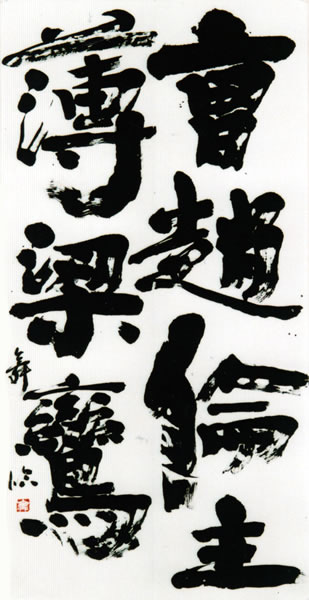 曹趙倫主
薄梁鸞